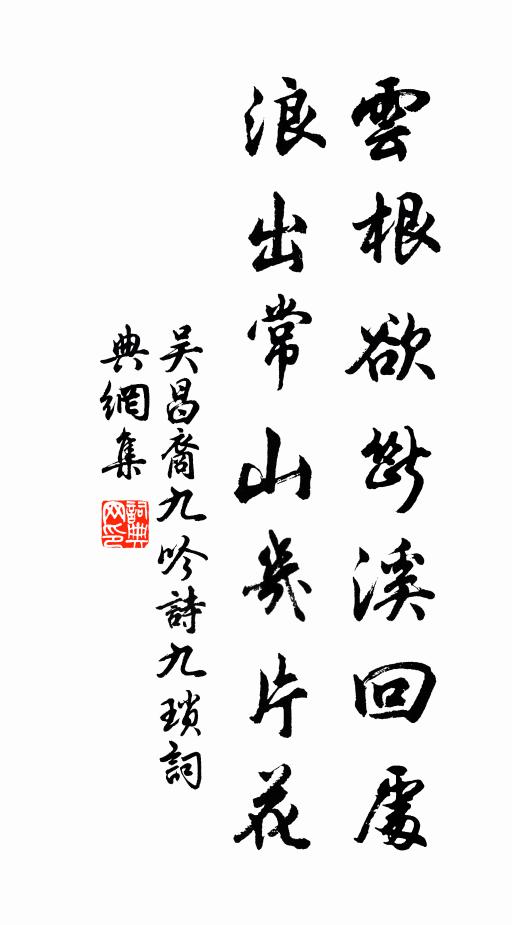 雲根欲斷溪回處
浪出常山幾片花
吴昌裔九吟詩九瑣詞
典網集
詞典网印